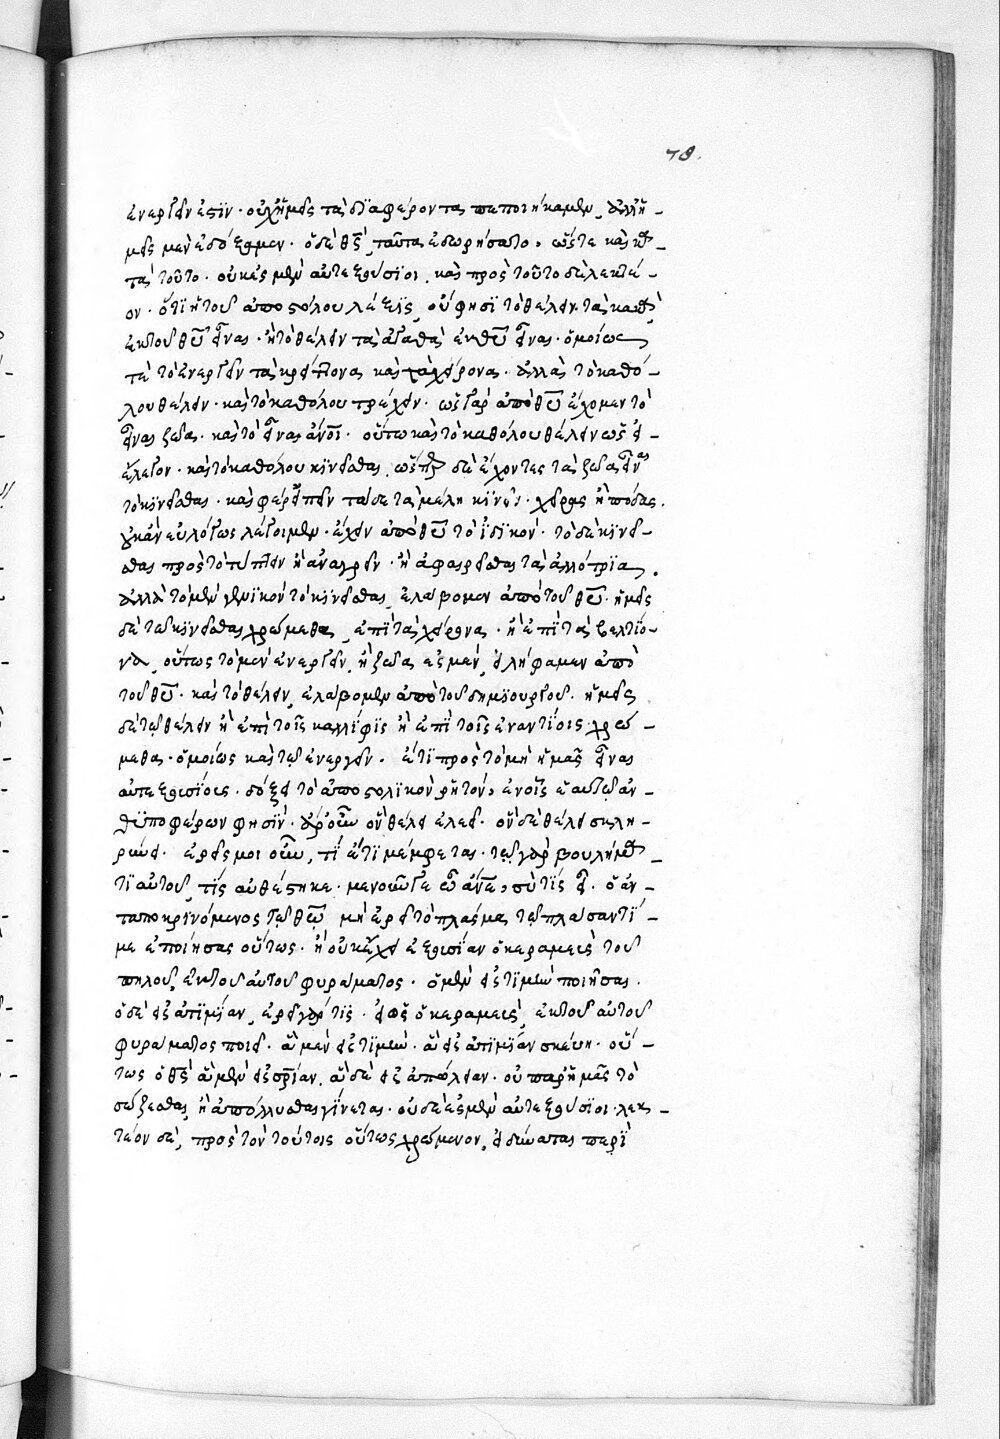 ἐνεργεῖν ἐστὶν· οὐχ ἡμεῖς τὰ διαφέροντα πεποιήκαμεν, ἀλλ' ἡ-
μεῖς μὲν ἐδόξαμεν· ὁ δὲ θς̄ ταῦτα ἐδωρήσατο, ὥστε καὶ κα-
τὰ τοῦτο· οὐκ ἐσμὲν αὐτεξούσιοι. καὶ πρὸς τοῦτο δὲ λεκτέ-
ον· ὅτι ἡ τοῦ ἀποστόλου λέξις, οὔ φησι τὸ θέλειν τὰ κακὰ
ἐκ τοῦ θῡ εἶναι· ἢ τὸ θέλειν τὰ ἀγαθὰ ἐκ θῡ εἶναι· ὁμοίως
τὲ τὸ ἐνεργεῖν τὰ κρείττονα καὶ τὰ χείρονα· ἀλλὰ τὸ καθό-
λου θέλειν· καὶ τὸ καθόλου τρέχειν· ὡς γὰρ ἀπὸ θῡ ἔχομεν τὸ
εἶναι ζῶα· καὶ τὸ εἶναι ἄνοι· οὕτω καὶ τὸ καθόλου θέλειν ὡς ἔ-
ἔλεγον· καὶ τὸ καθόλου κινεῖσθαι, ὥσπερ δὲ ἔχοντες τὰ ζῶα εἶναι
τὸ κινεῖσθαι· καὶ φέρ' εἰπεῖν τάδε τὰ μέλη κινεῖν· χεῖρας ἢ πόδας.
οὐκ ἂν εὐλόγως λέγοιμεν· ἔχειν ἀπὸ θῡ τὸ ἰδικόν· τὸ δὲ κινεῖ-
σθαι πρὸς τὸ τύπτειν ἢ ἀναιρεῖν· ἢ ἀφαιρεῖσθαι τὰ ἀλλότρια.
ἀλλὰ τὸ μὲν γενικὸν τὸ κινεῖσθαι, ἐλάβομεν ἀπὸ τοῦ θῡ· ἡμεῖς
δὲ τῶ κινεῖσθαι χρώμεθα, ἐπὶ τὰ χείρονα· ἢ ἐπὶ τὰ βελτίο-
να, οὕτως τὸ μὲν ἐνεργεῖν, ἢ ζῶα ἐσμὲν, εἰλήφαμεν ἀπὸ
τοῦ θῡ· καὶ τὸ θέλειν, ἐλάβομεν ἀπὸ τοῦ δημιουργοῦ· ἡμεῖς
δὲ τῶ θέλειν ἢ ἐπὶ τοῖς καλλίσοις ἢ ἐπὶ τοῖς ἐναντίοις χρώ-
μεθα· ὁμοίως καὶ τῶ ἐνεργεῖν. ἔτι πρὸς τὸ μὴ ἡμᾶς εἶναι
αὐτεξουσίους· δόξει τὸ ἀποστολικὸν ῥητόν, ἐν οἷς ἑαυτῶ ἀν-
θυποφέρων φησὶν· ἄρ' οὖν ὃν θέλει ἐλεεῖ· ὃν δὲ θέλει σκλη-
ρύνει· ἐρεῖς μοι οὖν, τί ἔτι μέμφεται· τῶ γὰρ βουλήμα-
τι αὐτοῦ, τίς ἀνθέστηκε· μενοῦνγε ὦ ἄνε, σὺ τίς εἶ· ὁ ἀν-
ταποκρινόμενος τῶ θῶ μὴ ἐρεῖ τὸ πλάσμα τῶ πλάσαντι
με ἐποίησας οὕτως· ἢ οὐκ ἔχει ἐξουσίαν ὁ κεραμεὺς τοῦ
πηλοῦ, ἐκ τοῦ αὐτοῦ φυράματος· ὃ μὲν εἰς τιμὴν ποιῆσαι.
ὃ δὲ εἰς ἀτιμίαν, ἐρεῖ γάρ τις· εἰ ὡς ὁ κεραμεὺς, ἐκ τοῦ αὐτοῦ
φυράματος ποιεῖ· ἃ μὲν εἰς τιμὴν· ἃ δ' εἰς ἀτιμίαν σκεύη· οὕ-
τως ὁ θς̄ ἃ μὲν εἰς σρίαν, ἃ δὲ εἰς ἀπώλειαν· οὐ παρ' ἡμᾶς τὸ
σώζεσθαι, ἢ ἀπόλλυσθαι γίνεται· οὐδὲ ἐσμὲν αὐτεξούσιοι· λεκ-
τέον δὲ, πρὸς τὸν τούτοις οὕτως χρώμενον, εἰ δύναται περὶ